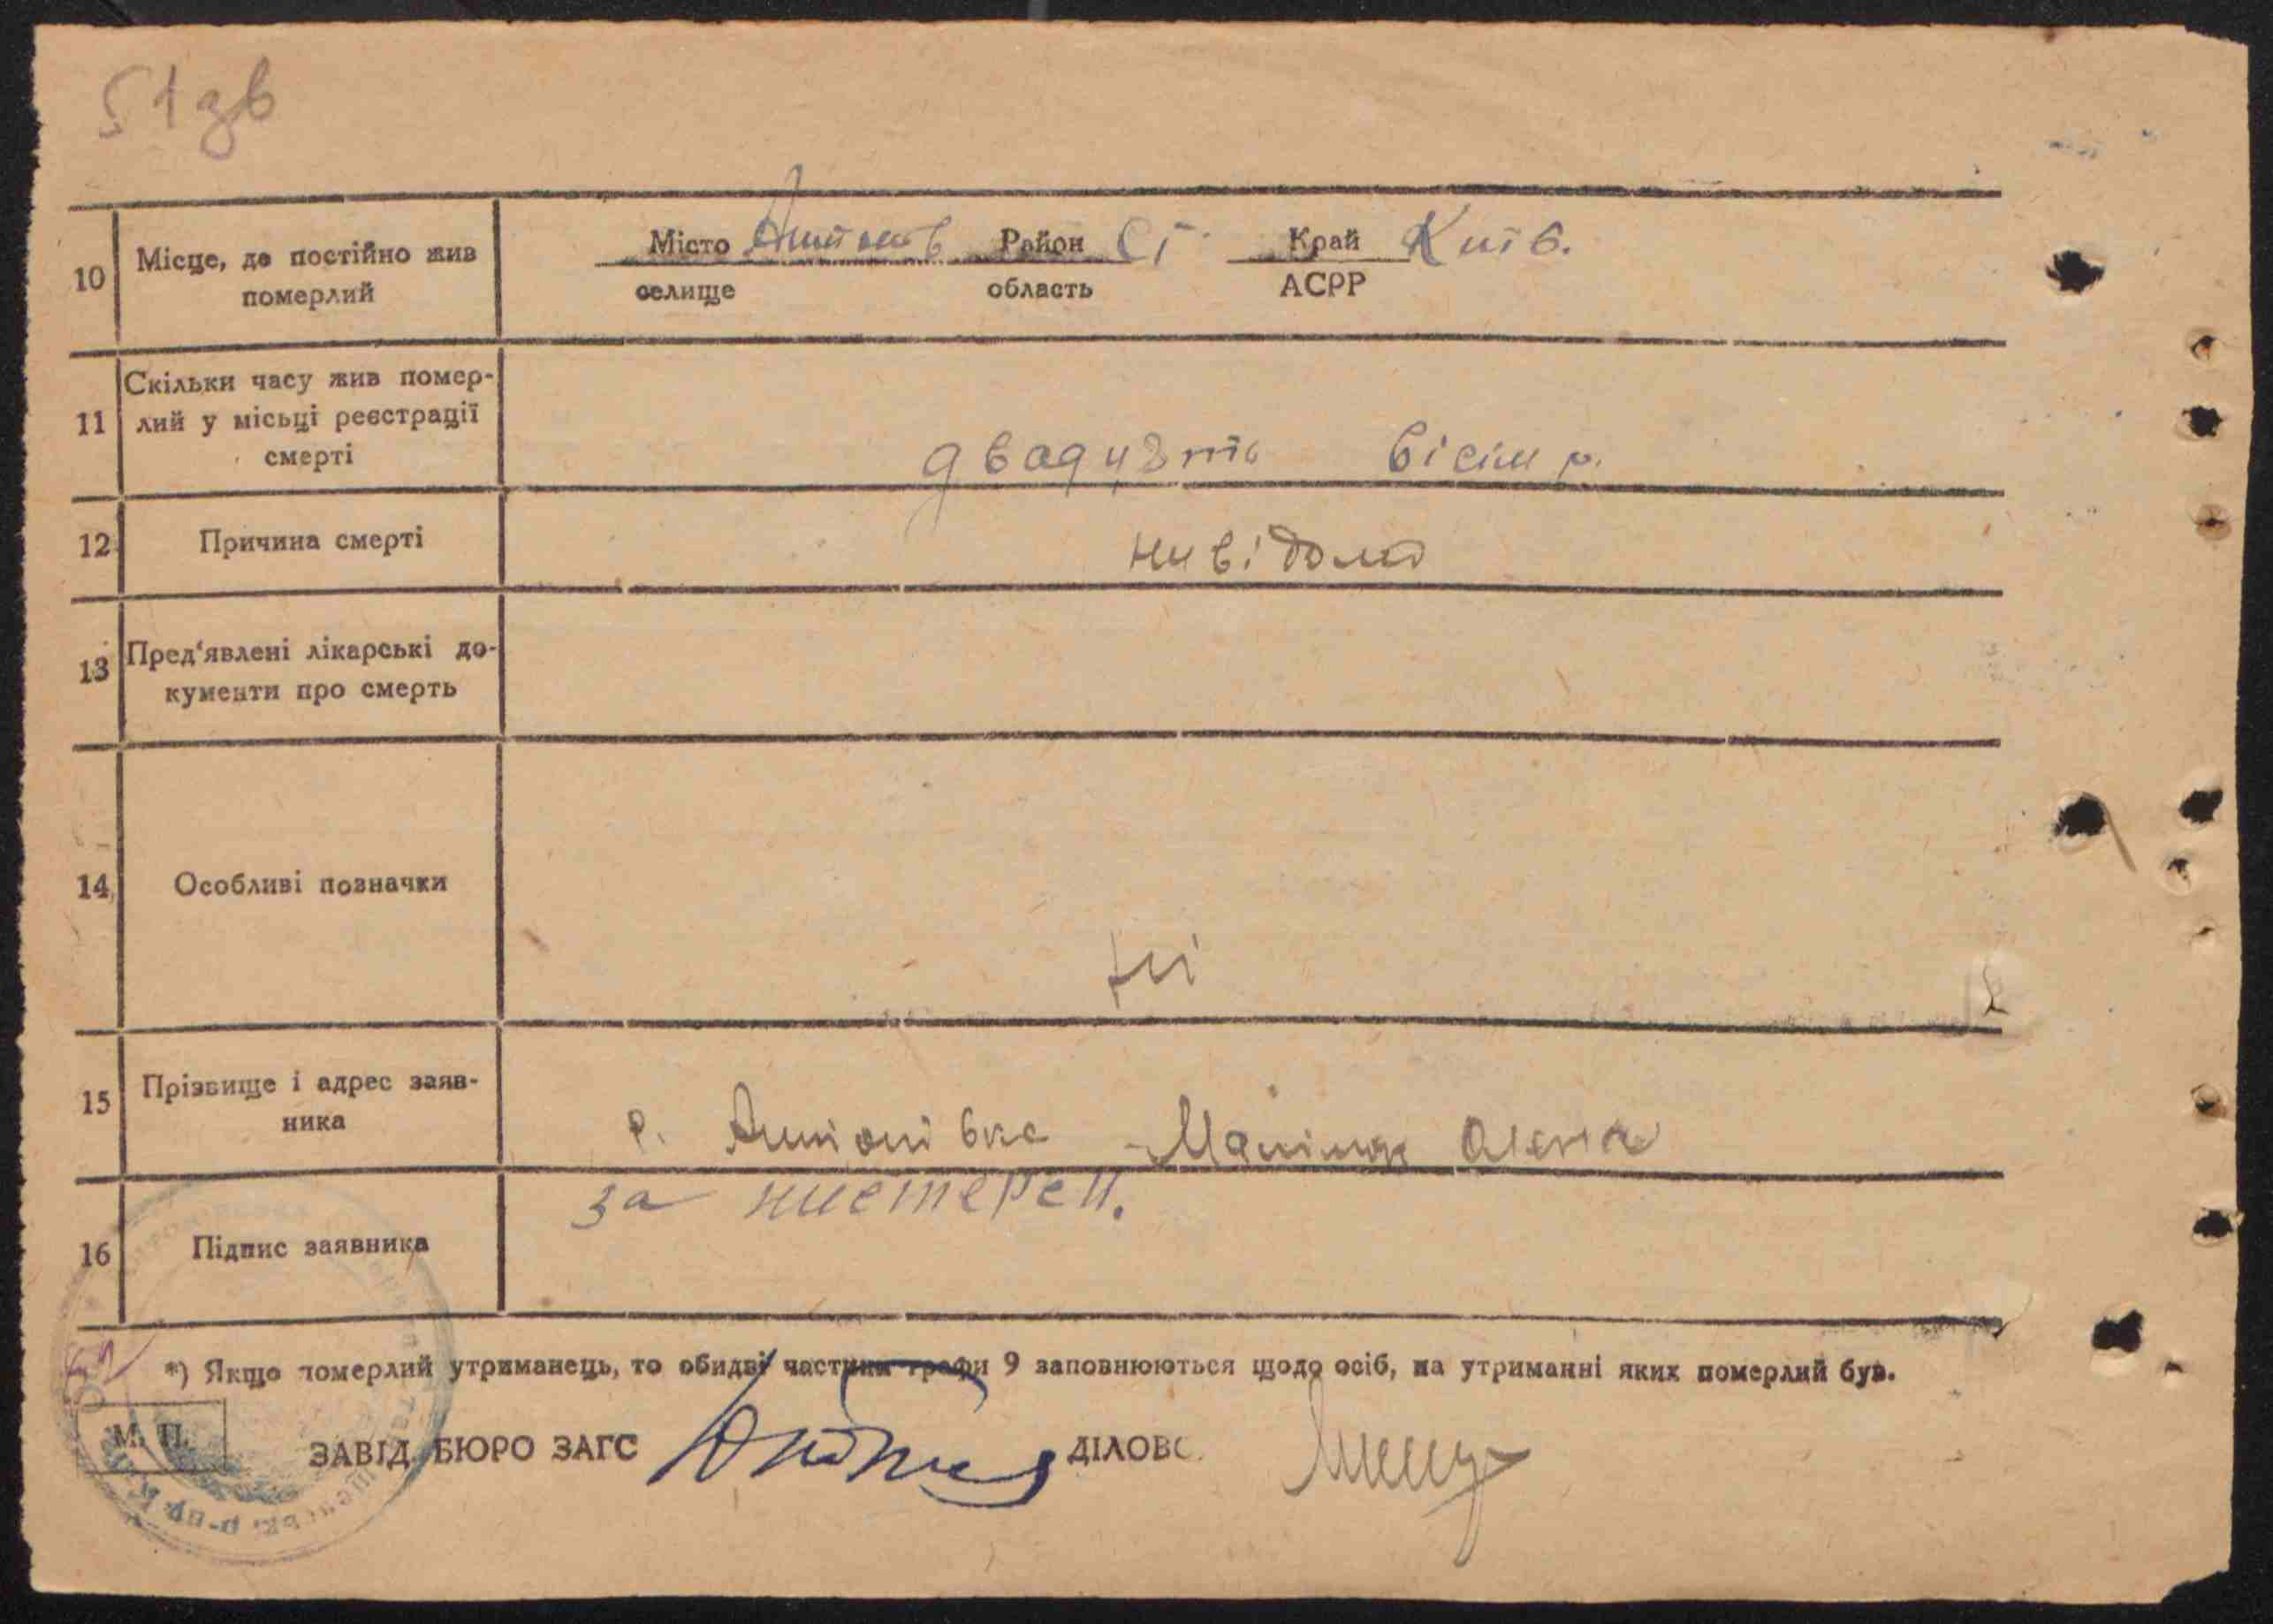 51зв
10 Місце, де постійно жив померлий
Місто Антонів Район Ст. Край Київ.
селище область АСРР
11 Скільки часу жив помер-
лий у місці реєстрації
смерті
двадцять вісім р.
12 Причина смерті
нивідома
13 Пред'явлені лікарські до-
кументи про смерть
14 Особливі позначки
ні
15 Прізвище і адрес заяв-
ника
с. Антонівка Олена
16 Підпис заявника
за
*) Якщо померлий утриманець, то обидві частини графи 9 заповнюються щодо осіб, на утриманні яких померлий був.
М. П.
ЗАВІД. БЮРО ЗАГС ДІЛОВ.